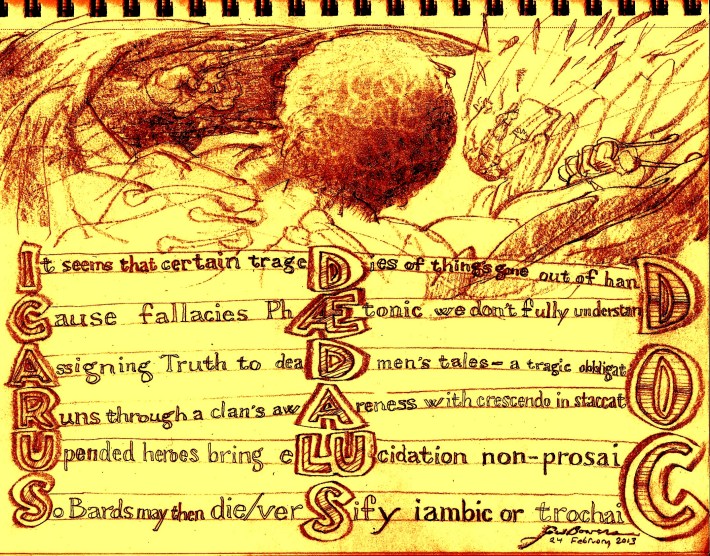 It seems that certain trageDies of things gone out of hanD
Cause fallacies PhÆtonic we don't fully understanD
Assigning Truth to deaD men's tales – a tragic obbligatO
Runs through a clan's awAreness with crescendo in staccatO
Upended heroes bring eLUcidation non-prosaiC
So Bards may then die/verSify iambic or trochaiC
24 February 2013